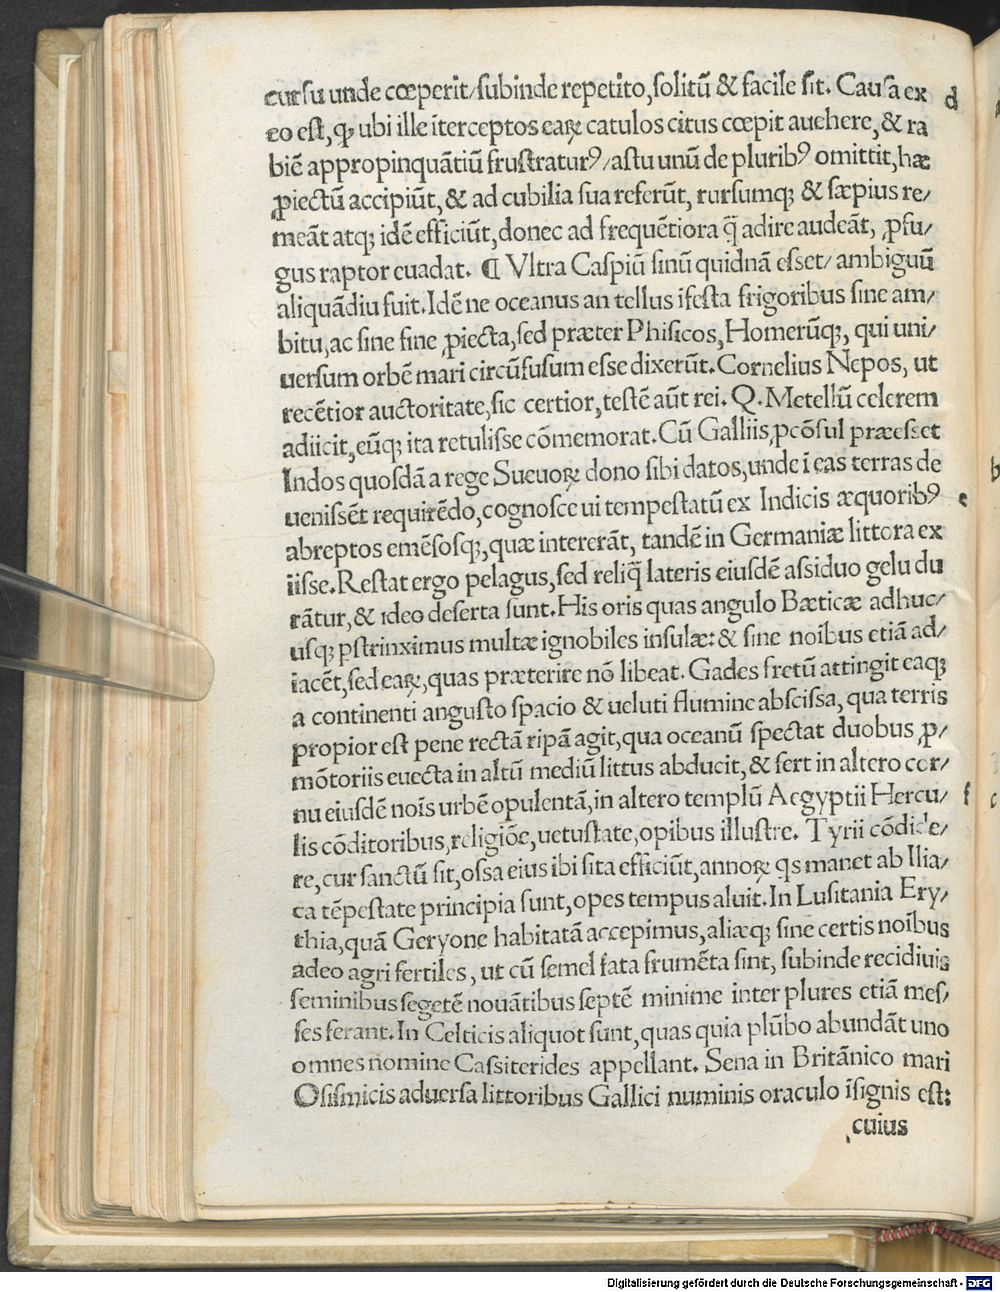 cursu unde cœperit/subinde repetito,solitū & facile sit. Causa ex d
eo est, ꝙ ubi ille īterceptos eaꝝ catulos citus cœpit auehere, & ra
biē appropinquātiū frustraturꝰ/astu unū de pluribꝰ omittit,hæ
ꝓiectū accipiūt, & ad cubilia sua referūt, rursumqꝫ & sæpius re/
meāt atqꝫ idē efficiūt,donec ad frequētiora q̄ adire audeāt, ꝓfu/
gus raptor euadat. ¶ Vltra Caspiū sinū quidnā esset/ambiguū
aliquādiu fuit.Idē ne oceanus an tellus īfesta frigoribus sine am/
bitu,ac sine fine ꝓiecta,sed præter Phisicos,Homerūqꝫ, qui uni/
uersum orbē mari circūfusum esse dixerūt.Cornelius Nepos, ut
recētior auctoritate,sic certior,testē aūt rei. Q.Metellū celerem
adiicit,eūqꝫ ita retulisse cōmemorat.Cū Galliis,ꝓcōsul præesset
Indos quosdā a rege Sueuoꝝ dono sibi datos,unde ī eas terras de
uenissēt requirēdo,cognosce ui tempestatū ex Indicis æquoribꝰ e
abreptos emēsosqꝫ,quæ intererāt, tandē in Germaniæ littora ex
iisse.Restat ergo pelagus,sed reliq̄ lateris eiusdē assiduo gelu du
rātur,& ideo deserta sunt.His oris quas angulo Bæticæ adhuc/
usqꝫ ꝑstrinximus multæ ignobiles insulæ:& sine noībus etiā ad/
iacēt,sed eaꝝ,quas præterire nō libeat. Gades fretū attingit eaqꝫ
a continenti angusto spacio & ueluti flumine abscissa, qua terris
propior est pene rectā ripā agit,qua oceanū spectat duobus ꝓ/
mōtoriis euecta in altū mediū littus abducit, & fert in altero cor/
nu eiusdē nois urbē opulentā,in altero templū Aegyptii Hercu/ f
lis cōditoribus,religiōe,uetustate,opibus illustre. Tyrii cōdide/
re,cur sanctū sit,ossa eius ibi sita efficiūt,annoꝝ qs manet ab Ilia/
ca tēpestate principia sunt,opes tempus aluit.In Lusitania Ery/
thia,quā Geryone habitatā accepimus,aliæqꝫ sine certis noībus
adeo agri fertiles, ut cū semel sata frumēta sint, subinde recidiuis
seminibus segetē nouātibus septē minime inter plures etiā mes/
ses ferant.In Celticis aliquot sunt,quas quia plūbo abundāt uno
omnes nomine Cassiterides appellant. Sena in Britānico mari
Osismicis aduersa littoribus Gallici numinis oraculo īsignis est:
cuius
Digitalisierung gefördert durch die Deutsche Forschungsgemeinschaft - DFG